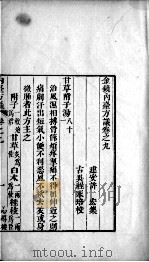 金鏡內臺方議卷之九
建安許 宏集
古吳程永培校
甘草附子湯八十
治風濕相搏骨節煩疼掣痛不得屈伸近之則
痛劇汗出短氣小便不利惡風不欲去衣或身
微腫者此方主之
附子 甘草 白朮 桂枝